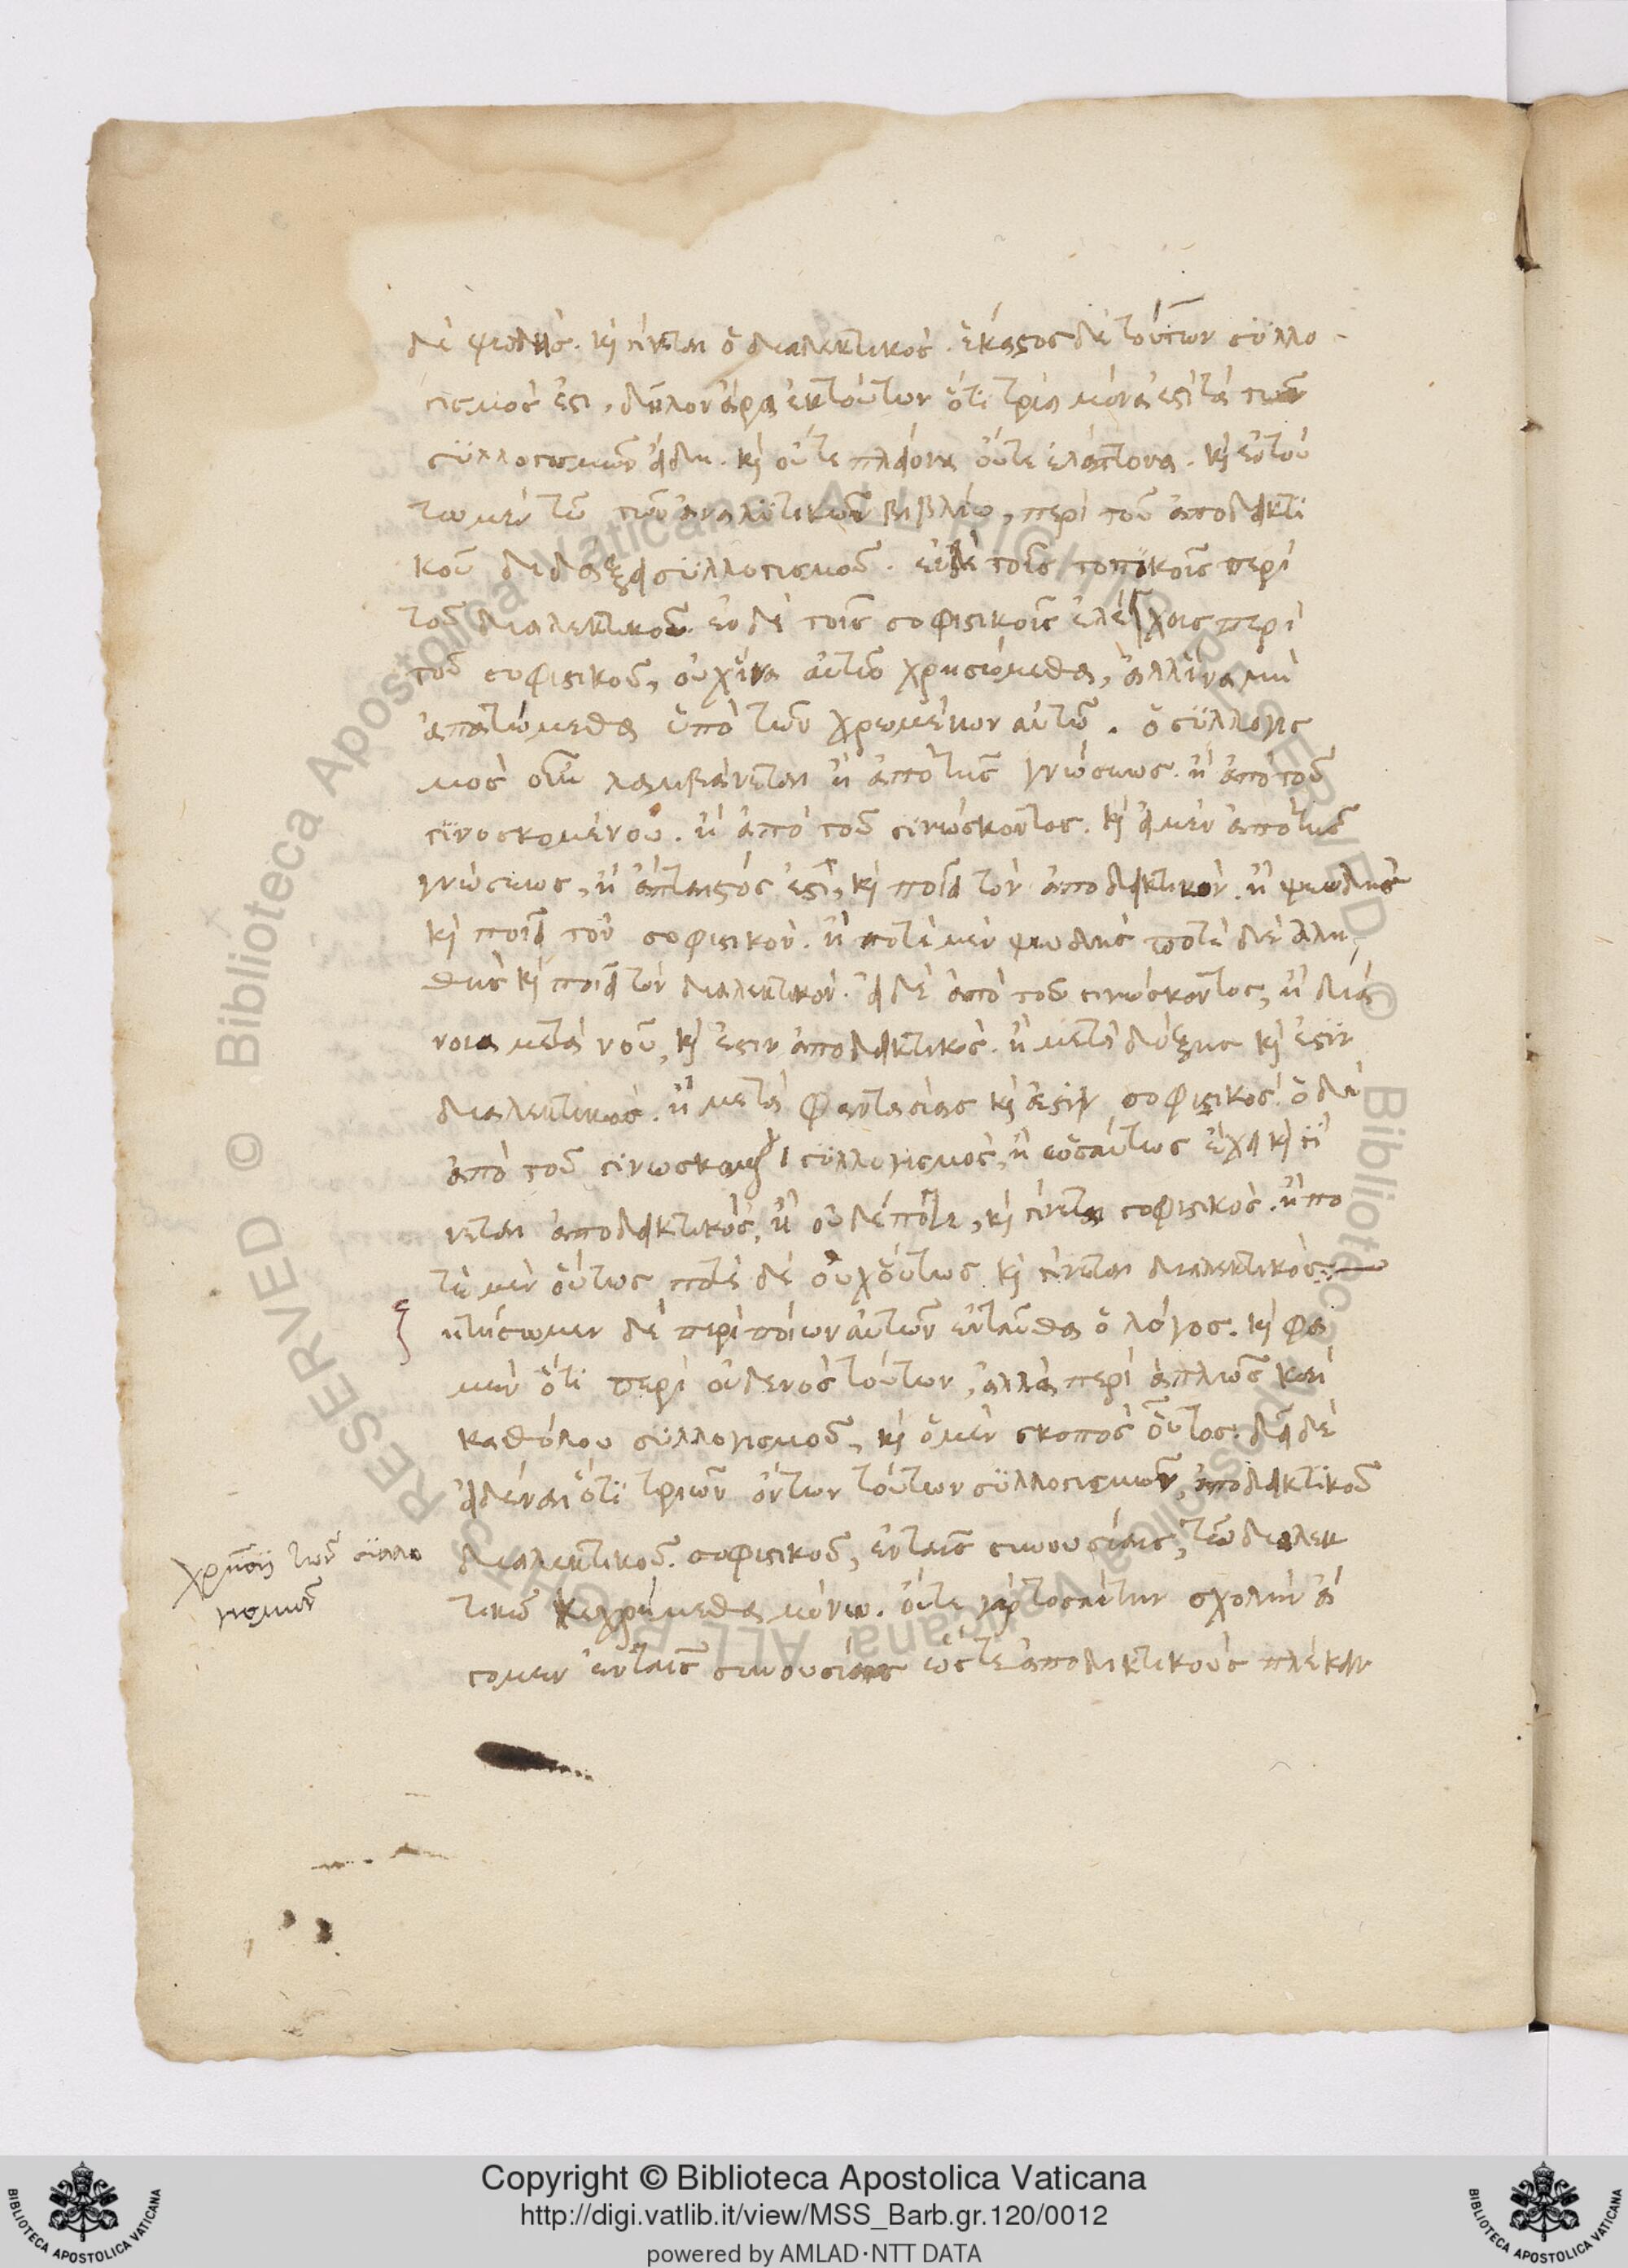 δὲ ψευδής. καὶ γίνεται ὁ διαλεκτικός. ἕκαστος δὲ τούτων συλλο
γισμός ἐστι. δῆλον ἄρα ἐκ τούτων ὅτι τρία μόνα ἐστὶ τὰ τῶν
συλλογισμῶν εἴδη. καὶ οὔτε πλείονα οὔτε ἐλάττονα. καὶ ἐν τού
τω μὲν τῶ τῶν ἀναλυτικῶν βιβλίω, περὶ τοῦ ἀποδεικτι
κοῦ διδάξει συλλογισμοῦ. ἐν δὲ τοῖς τοπικοῖς περὶ
τοῦ διαλεκτικοῦ. ἐν δὲ τοῖς σοφιστικοῖς ἐλέγχοις περὶ
τοῦ σοφιστικοῦ, οὐχ ἵνα αὐτῶ χρησώμεθα, ἀλλ' ἵνα μὴ
ἀπατώμεθα ὑπὸ τῶν χρωμένων αὐτῶ. ὁ συλλογισ
μὸς οὖν λαμβάνεται ἢ ἀπὸ τῆς γνώσεως. ἢ ἀπὸ τοῦ
γινοσκομένου. ἢ ἀπὸ τοῦ γινώσκοντος. καὶ εἰ μὲν ἀπὸ τῆς
γνώσεως, ἢ ἄπταιστός ἐστι, καὶ ποιεῖ τὸν ἀποδεικτικόν. ἢ ψευδὴς
καὶ ποιεῖ τὸν σοφιστικόν. ἢ ποτὲ μὲν ψευδὴς ποτὲ δὲ ἀλη
θὴς καὶ ποιεῖ τὸν διαλεκτικόν. εἰ δὲ ἀπὸ τοῦ γινώσκοντος, ἢ διά
νοια μετὰ νοῦ, καὶ ἔστιν ἀποδεικτικός. ἢ μετὰ δόξης καὶ ἔστιν
διαλεκτικός. ἢ μετὰ φαντασίας καὶ ἔστιν σοφιστικός. ὁ δὲ
ἀπὸ τοῦ γινωσκομένου συλλογισμός, ἢ ὡσαύτως ἔχει καὶ γί
νεται ἀποδεικτικός, ἢ οὐδέποτε, καὶ γίνεται σοφιστικός. ἢ πο
τὲ μὲν οὕτως ποτὲ δὲ οὐχ οὕτως καὶ γίνεται διαλεκτικός
ζητήσωμεν δὲ περὶ ποίων αὐτῶν ἐνταῦθα ὁ λόγος. καὶ φα
μὲν ὅτι περὶ οὐδενὸς τούτων, ἀλλὰ περὶ ἁπλῶς καὶ
καθόλου συλλογισμοῦ, καὶ ὁ μὲν σκοπὸς οὗτος. δεῖ δὲ
εἰδέναι ὅτι τριῶν ὄντων τούτων συλλογισμῶν, ἀποδεικτικοῦ
διαλεκτικοῦ. σοφιστικοῦ, ἐν ταῖς συνουσίαις, τῶ διαλεκ
τικῶ κεχρήμεθα μόνω. οὔτε γὰρ τοσαύτην σχολὴν ἄ
γομεν ἐν ταῖς συνουσίαις ὥστε ἀποδικτικοὺς πλέκειν
χρῆσις τῶν συλλο
γισμῶν
Copyright © Biblioteca Apostolica Vaticana
http://digi.vatlib.it/view/MSS_Barb.gr.120/0012
powered by AMLAD·NTT DATA
BIBLIOTECA APOSTOLICA VATICANA
BIBLIOTECA APOSTOLICA VATICANA